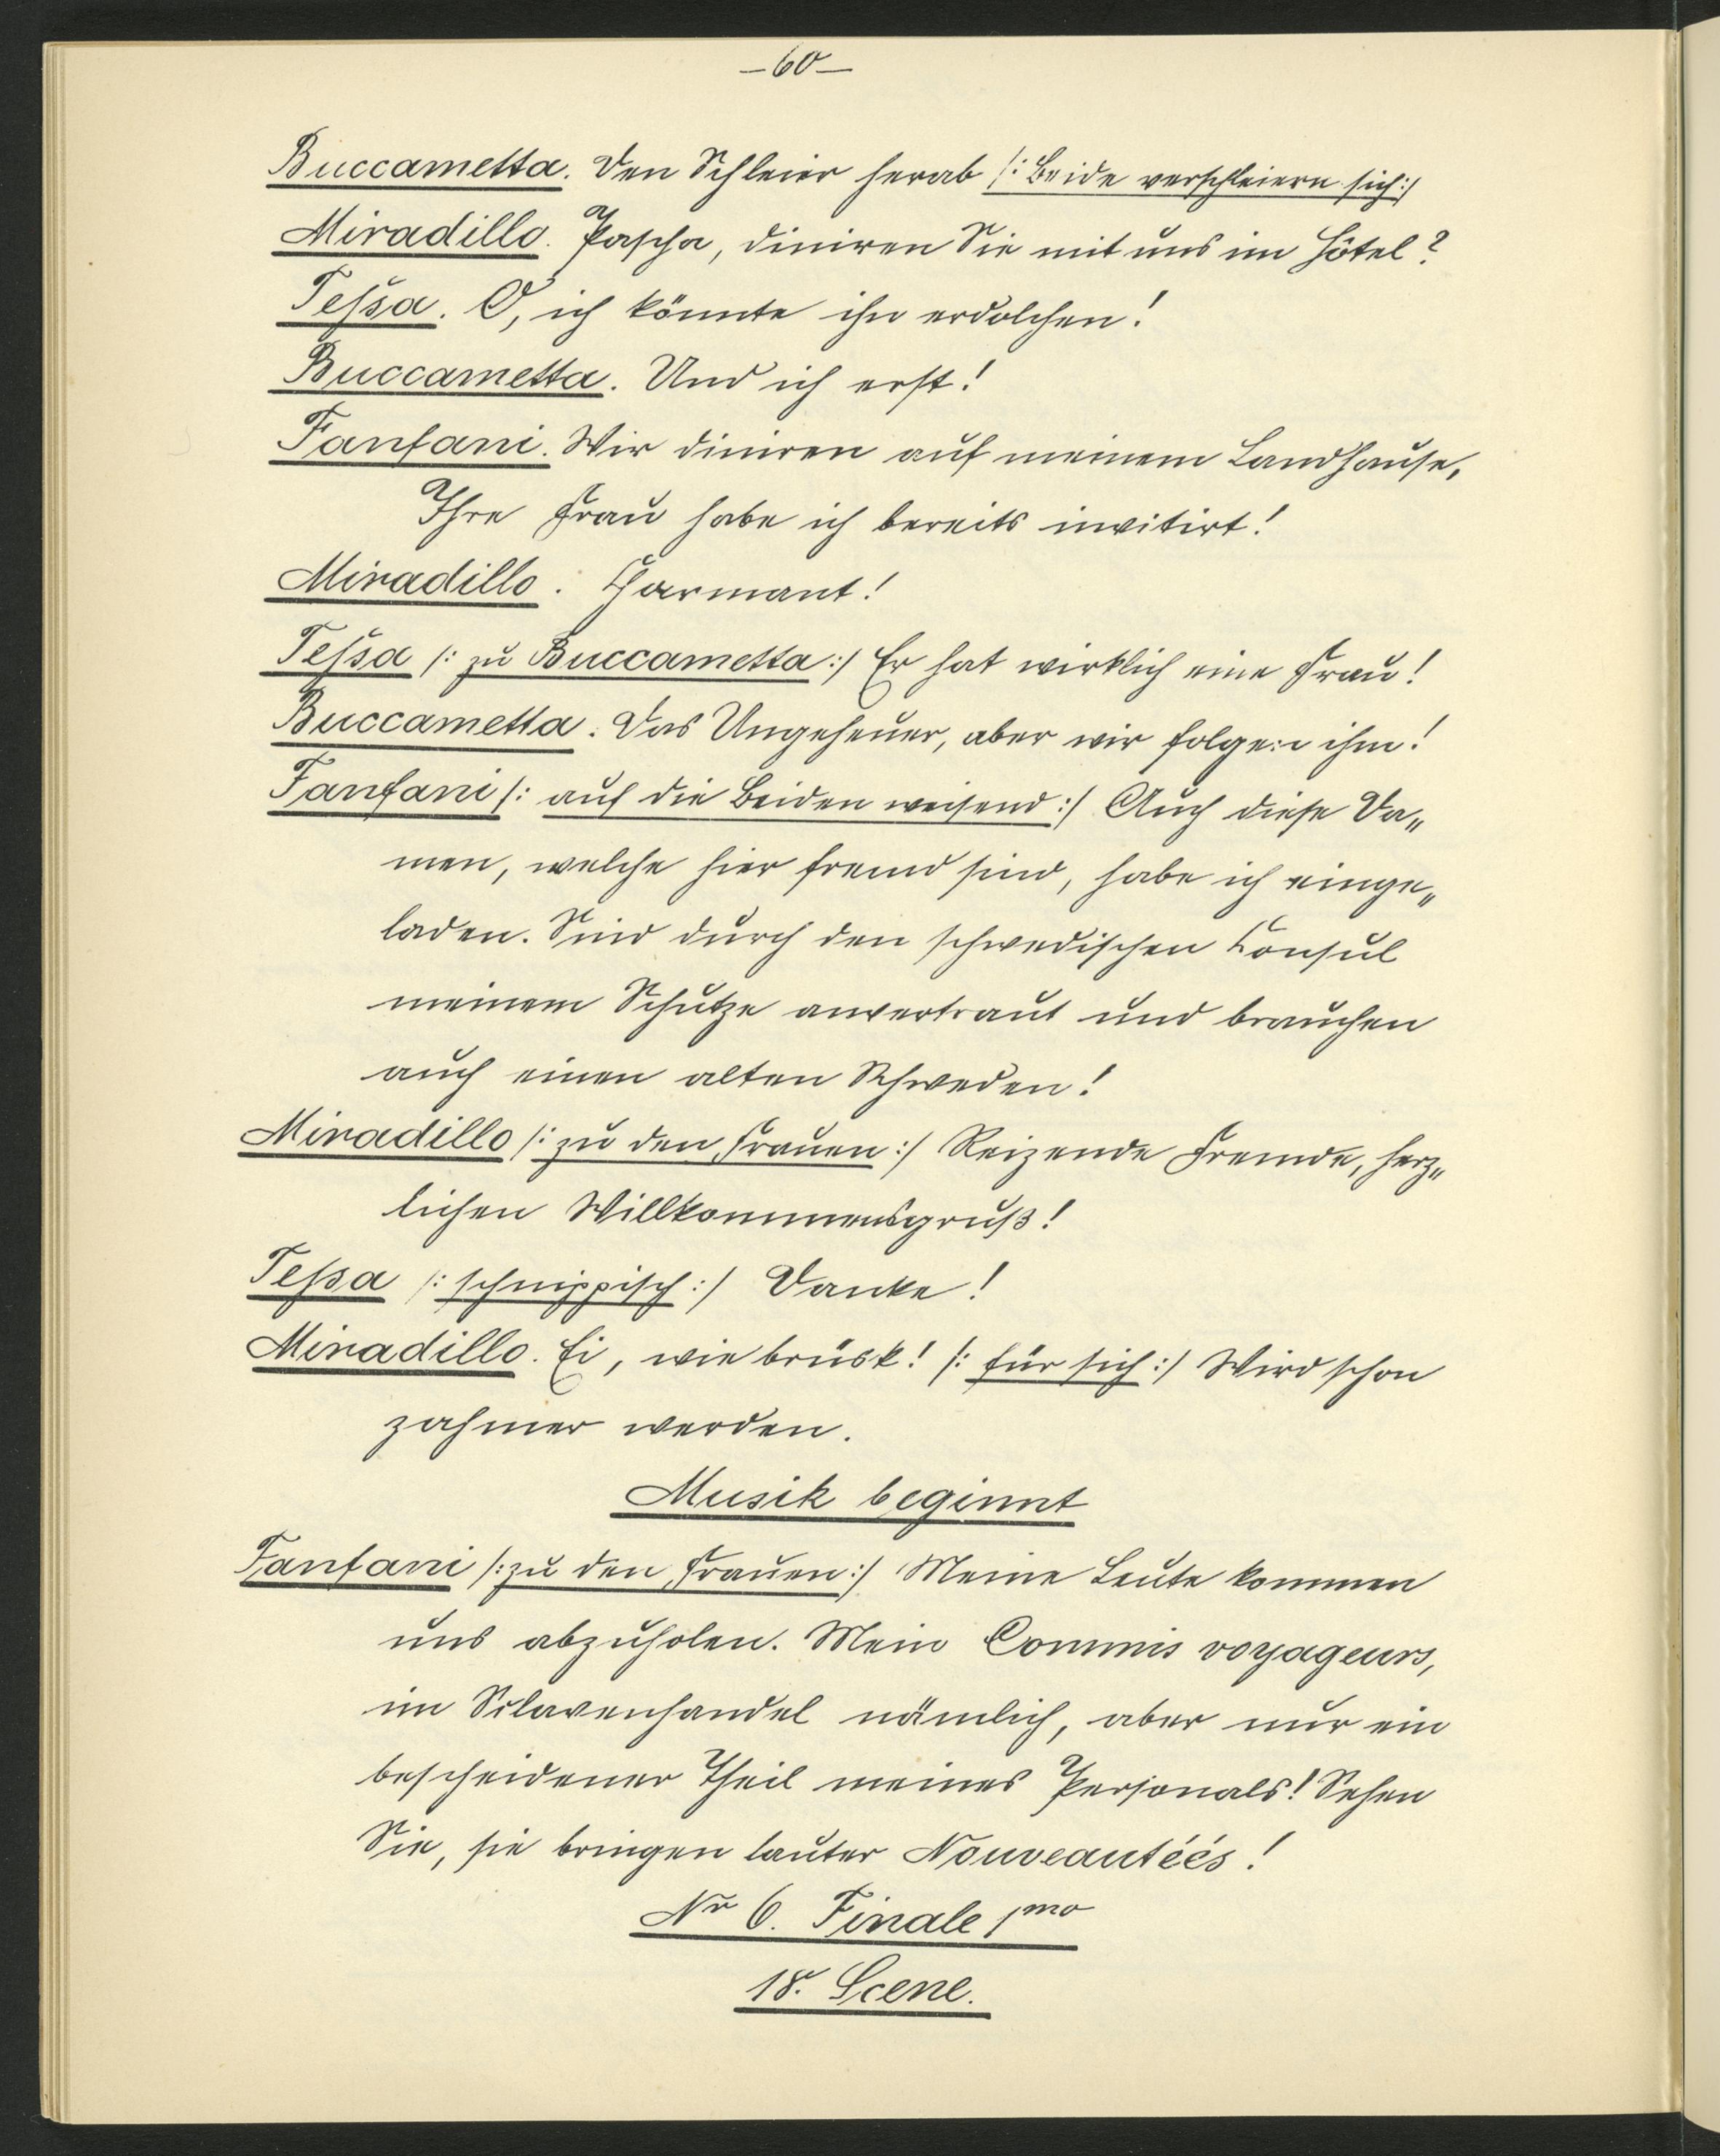 –60–
Buccametta. Den Schleier herab /: Beide verschleiern sich :/
Miradillo. Pascha, diniren Sie mit uns im Hôtel?
Tessa. O, ich könnte ihn erdolchen!
Buccametta. Und ich erst!
Fanfani. Wir diniren auf meinem Landhause,
Ihre Frau habe ich bereits invitirt!
Miradillo. Charmant!
Tessa /: zu Buccametta :/ Er hat wirklich eine Frau!
Buccametta. Das Ungeheuer, aber wir folgen ihm!
Fanfani /: auf die Beiden weisend :/ Auch diese Da„
men, welche hier fremd sind, habe ich einge„
laden. Sind durch den schwedischen Consul
meinem Schutze anvertraut und brauchen
auch einen alten Schweden!
Miradillo /: zu den Frauen :/ Reizende Fremde, herz„
lichen Willkommensgruß!
Tessa /: schnippisch :/ Danke!
Miradillo. Ei, wie brüsk! /: für sich :/ Wird schon
zahmer werden.
Musik beginnt
Fanfani /: zu den Frauen :/ Meine Leute kommen
uns abzuholen. Mein Commis voyageurs,
im Sclavenhandel nämlich, aber nur ein
bescheidener Theil meines Personals! Sehen
Sie, sie bringen lauter Nouveautéés!
Nr 6. Finale 1mo
18. Scene.